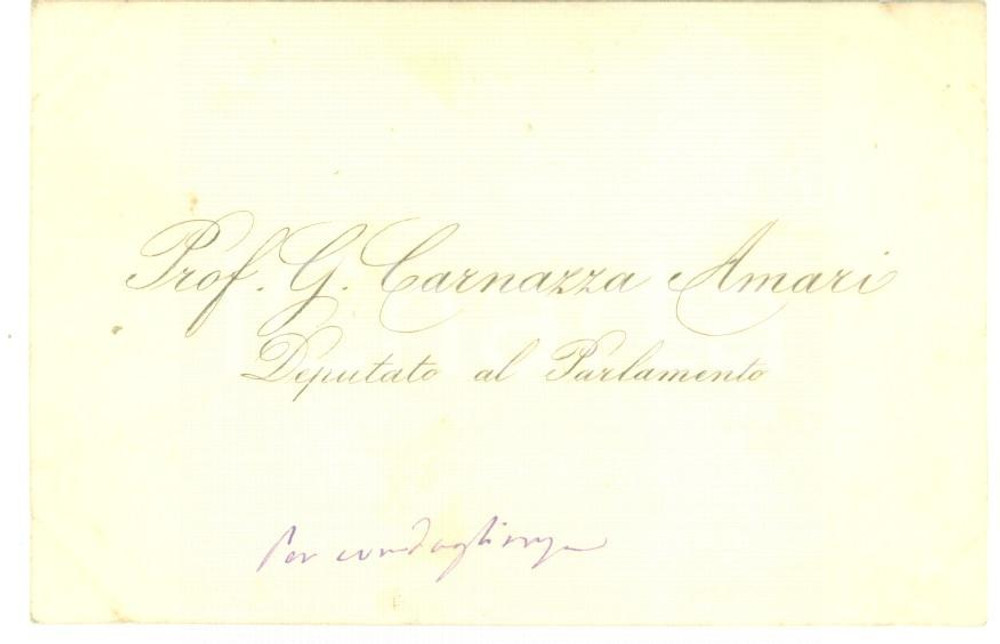 Prof. G. Carnazza Amari
Deputato al Parlamento
Per condoglianze